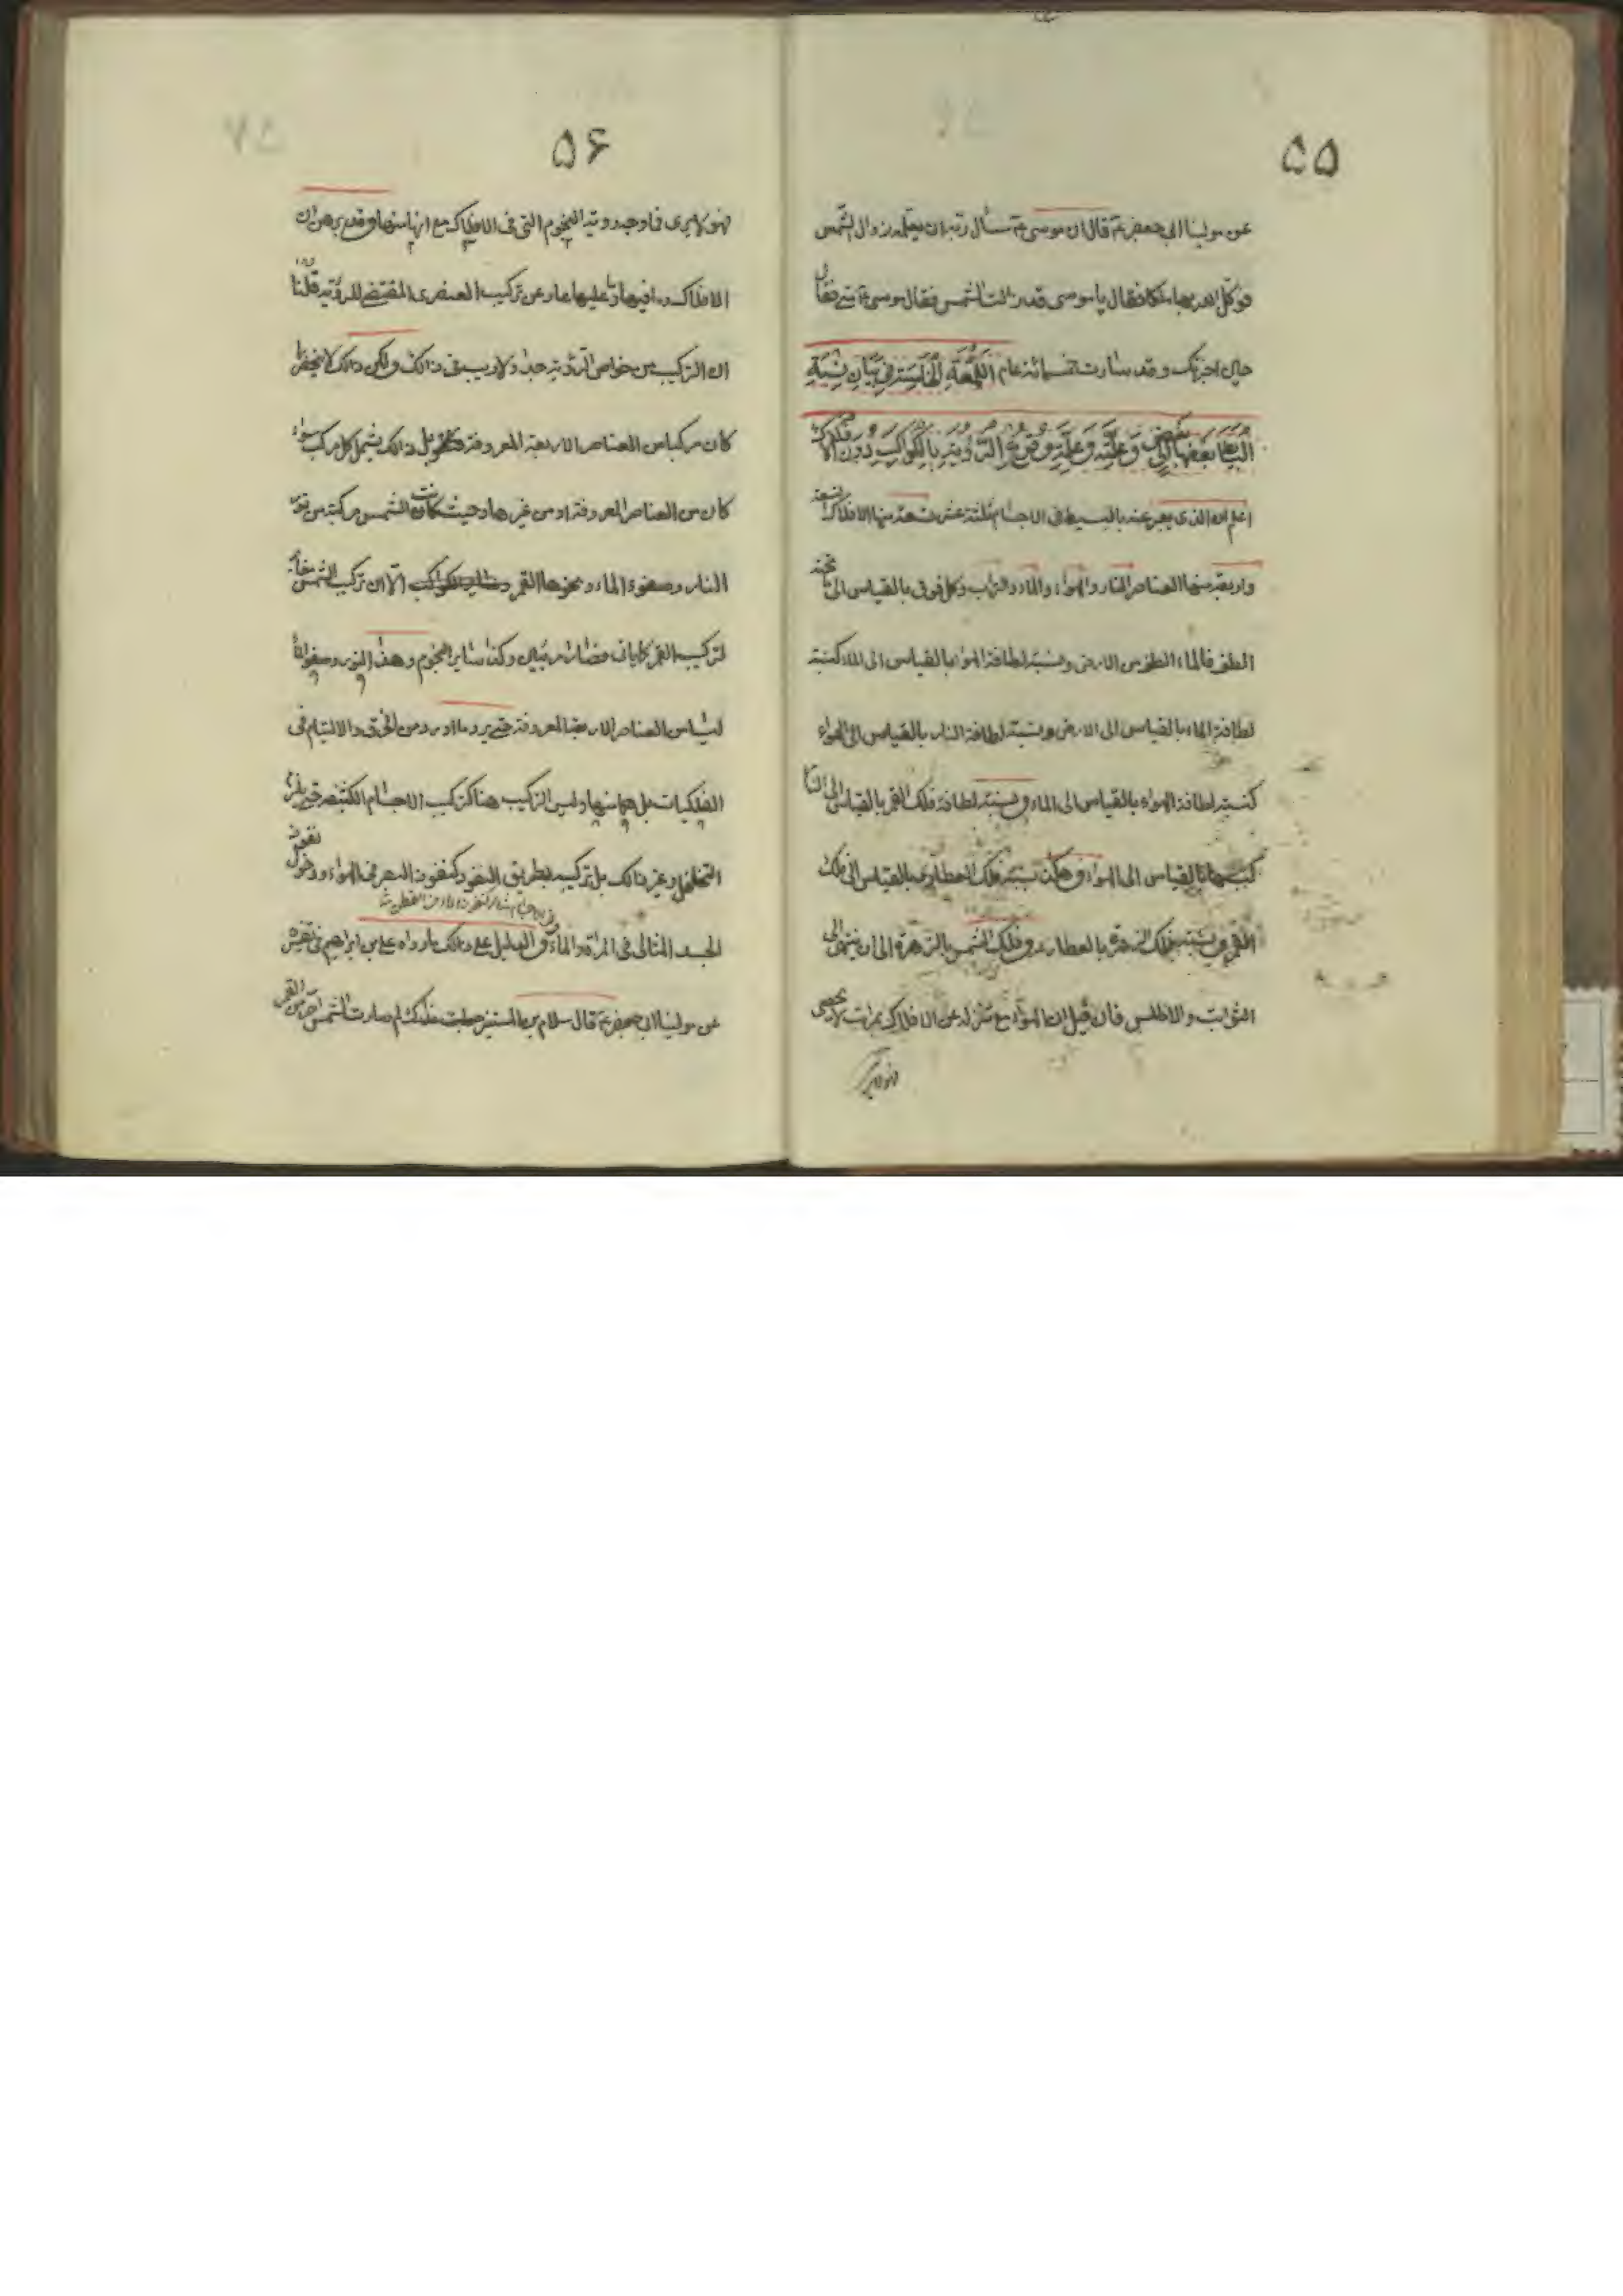 ٥٥
عن مولينا ابی جعفر ع قال ان موسی ع سأل ربه ان يعلمه زوال الشمس
فوكل الله بها ملكا فقال يا موسی قد زالت الشمس فقال موسی ع متی فقال
حين اخبرتك وقد سارت خمسمائة عام اَللُّمْعَةِ الْخامِسَةِ فِي بَيانِ نِسْبَةِ
البَسائط بَعْضِها اِلی بعض وَعِلَّتِه وَعِلَّةِ وقوعِ الرُّؤْيَةِ بِالكَواكِبِ دُونَ الأفلاك
اعلم ان الذی يعبر عنه بالبسيط فی الاجسام ثلثة عشر تسعة منها الافلاك التسعة
واربعة منها العناصر النار والهواء والماء والتراب وكل فوق بالقياس الی ما تحته
الطف فالماء الطف من الارض ونسبة لطافة الهواء بالقياس الی الماء كنسبة
لطافة الماء بالقياس الی الارض ونسبة لطافة النار بالقياس الی الهواء
كنسبة لطافة الهواء بالقياس الی الماء ونسبة لطافة فلك القمر بالقياس الی النار
كنسبتها بالقياس الی الهواء وهكذا نسبة فلك العطارد بالقياس الی فلك
القمر ونسبة فلك الزهرة بالعطارد وفلك الشمس بالزهرة الی ان ينتهی الی
الثوابت والاطلس فان قيل ان الهواء مع تنزله عن الافلاك بمراتب لا تحصی
٥۶
فهو لا يری فما وجه رؤية النجوم التی فی الافلاك مع انها منها وقد برهن ان
الافلاك وما فيها وما عليها عار عن تركيب العنصری المقتضی للرؤية قلنا
ان التركيب من خواص الرؤية جدا ولا ريب فی ذلك ولكن ذلك لا ينحصر بما
كان مركبا من العناصر الاربعة المعروفة بل ذلك يشمل كل مركب سواء
كان من العناصر المعروفة او من غيرها وحيث كانت الشمس مركبة من نور
النار وصفو الماء ونحوها القمر الا ان تركيب الشمس مخالف
لتركيب القمر كما يأتی فصارا مرئيين وكذا ساير النجوم وهذا النور وصفو الماء
ليسا من العناصر الاربعة المعروفة حتی يرد ما اورد من الخرق والالتيام فی
الفلكيات بل هما منها وليس التركيب هنا كتركيب الاجسام الكثيفة حتی يلزم
التخلخل وغير ذلك بل تركيبه بطريق النفوذ كنفوذ البصر فی الهواء ونفوذ
الجسد المثالی فی المرآة والماء والدليل علی ذلك ما رواه علی بن ابراهيم فی تفسيره
عن مولينا ابی جعفر ع قال سلام بن المستنير جعلت فداك لم صارت الشمس احر من القمر